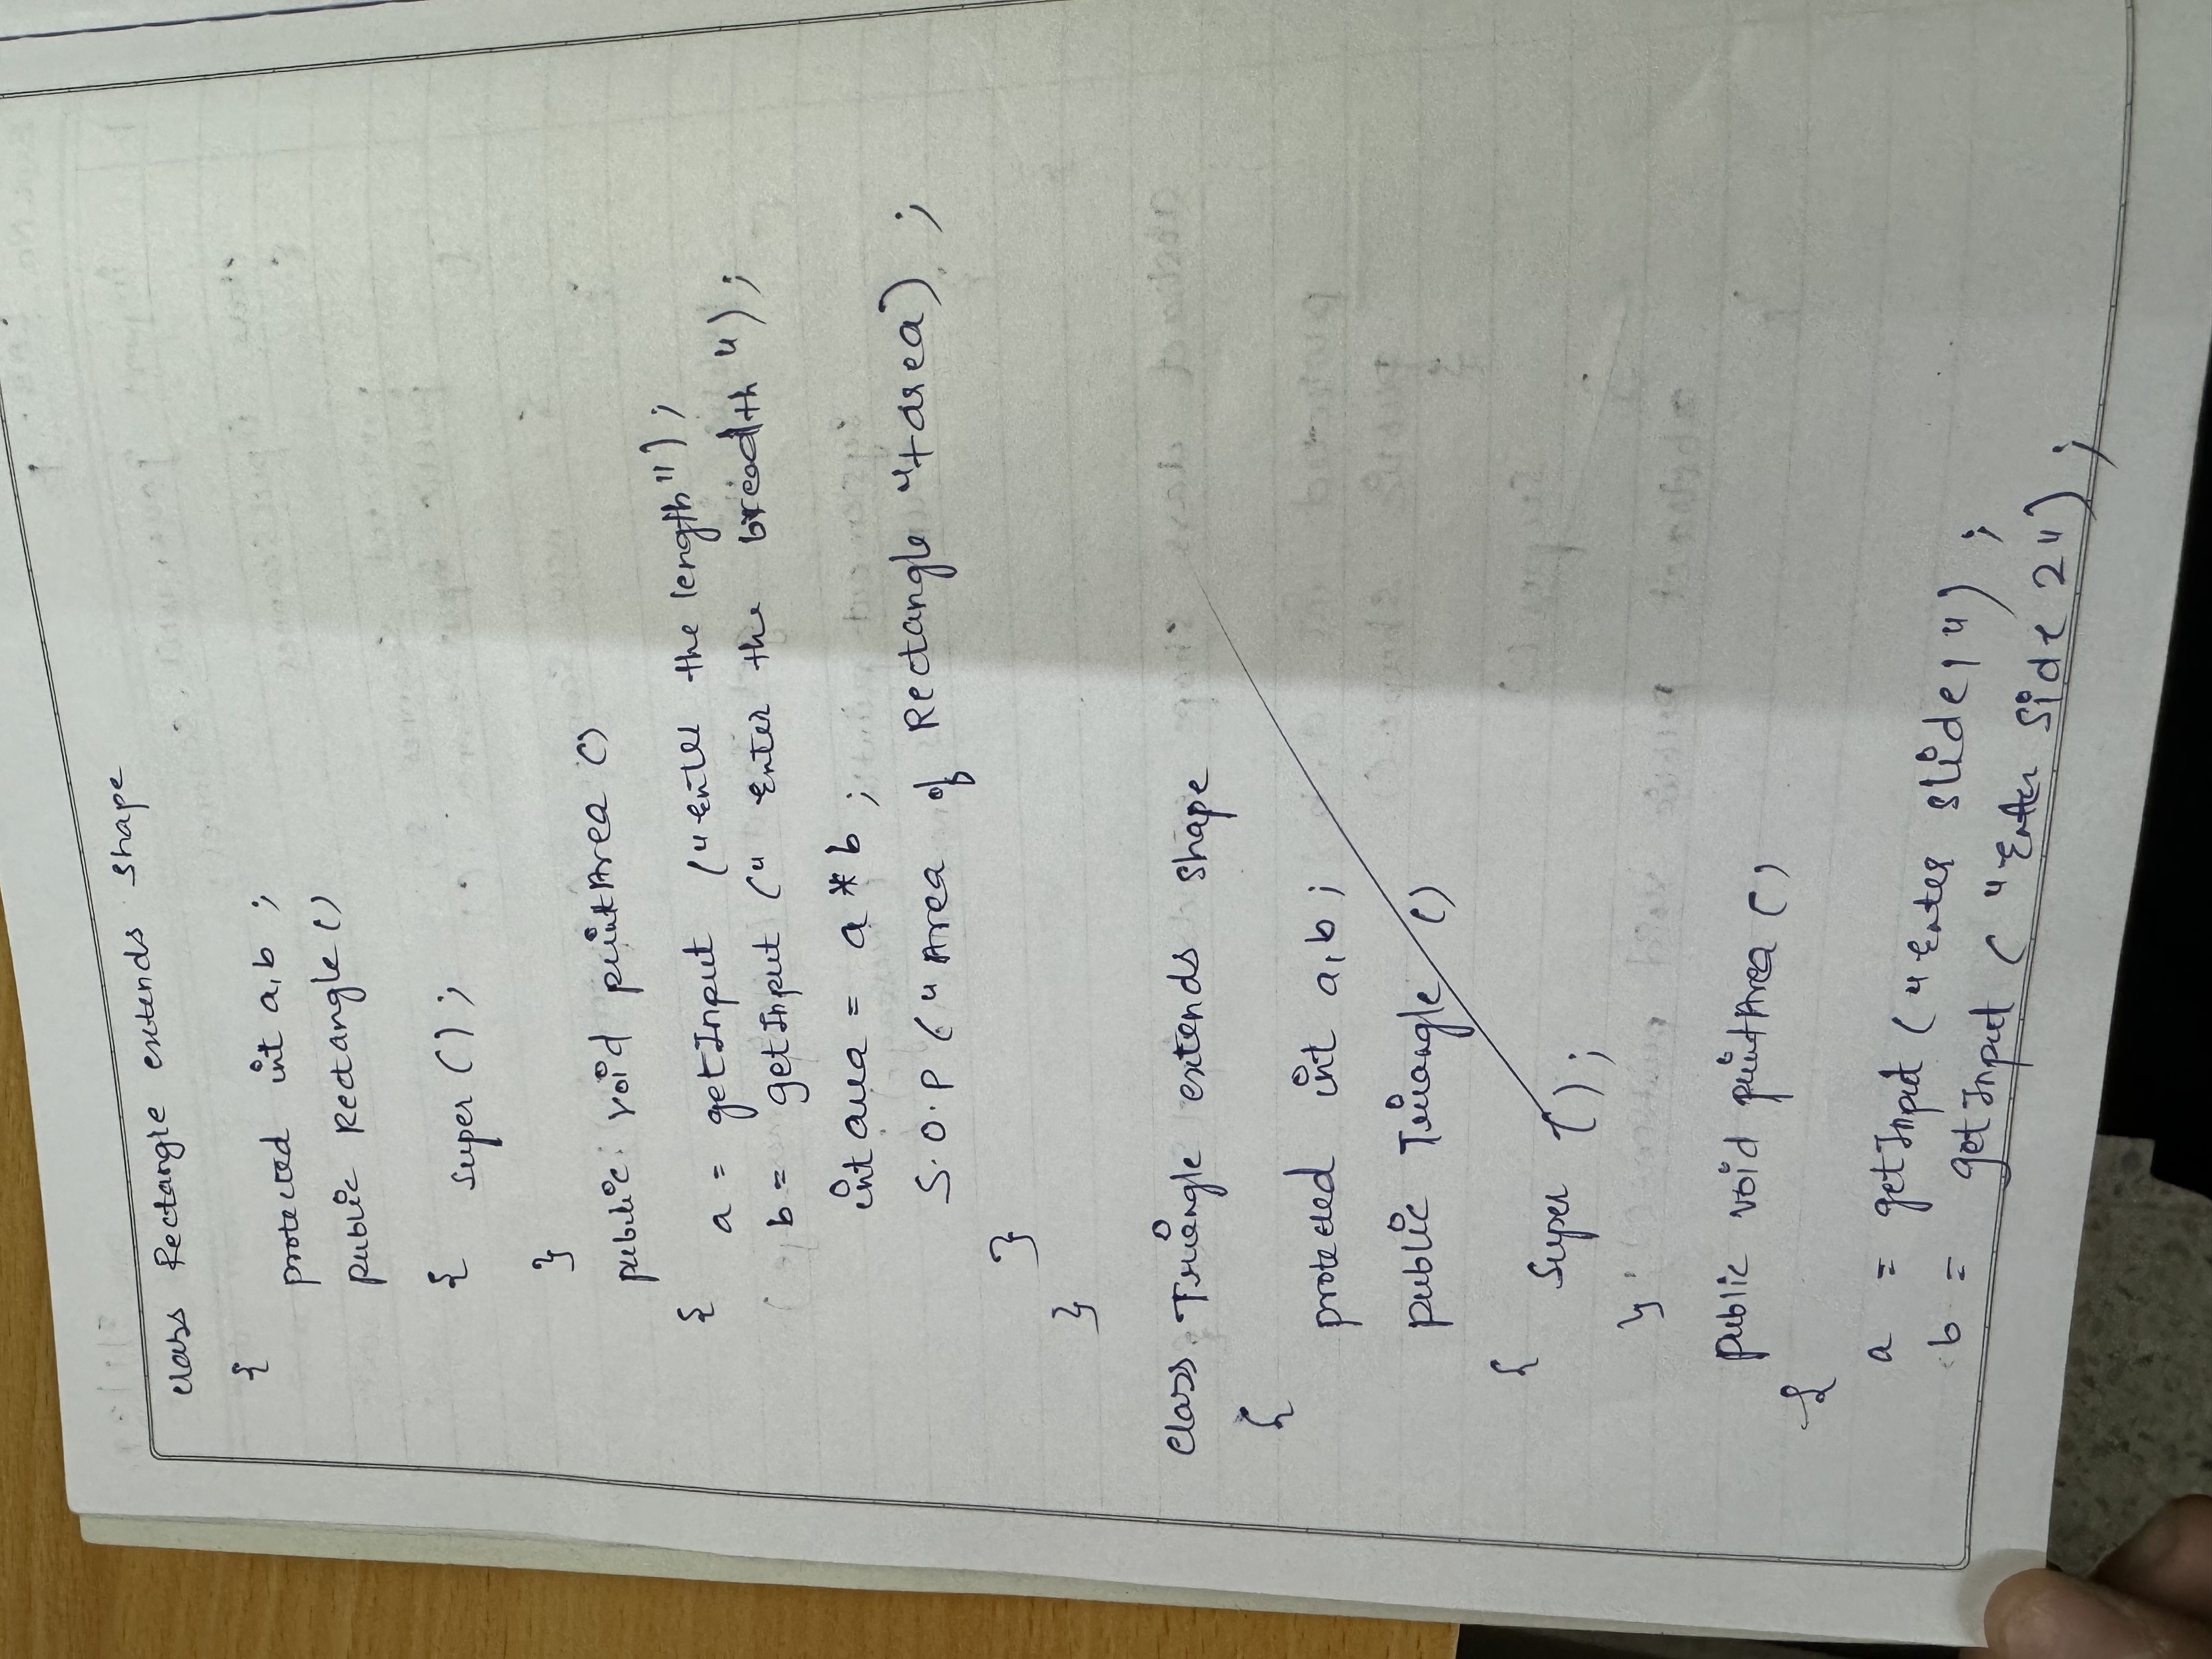 class Rectangle extends shape
{
protected int a,b ;
public Rectangle ()
{ super () ;
}
public void printArea ()
{ a = getInput ("Enter the length") ;
b = getInput (" Enter the breadth ") ;
int area = a * b ;
S.O.P (" Area of Rectangle "+area) ;
}
}
class Triangle extends shape
{
protected int a,b ;
public Triangle ()
{ Super () ;
}
public void printArea ()
{
a = getInput ("Enter slide1") ;
b = getInput ("Enter Side 2") ;